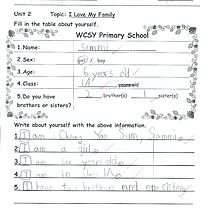 Unit 2 Topic: I Love My Family
Fill in the table about yourself.
WCSY Primary School
1.Name: Sammi
2.Sex: girl / boy
3.Age: 6 years old
4.Class: 1A
5.Do you have brothers or sisters? 2 brother(s) 1 sister(s)
Write about yourself with the above information.
1. I am Cheng Yan Sum, Sammi.
2. I am a girl.
3. I am six years old.
4. I am in Class 1A.
5. I have two brothers and one sister.